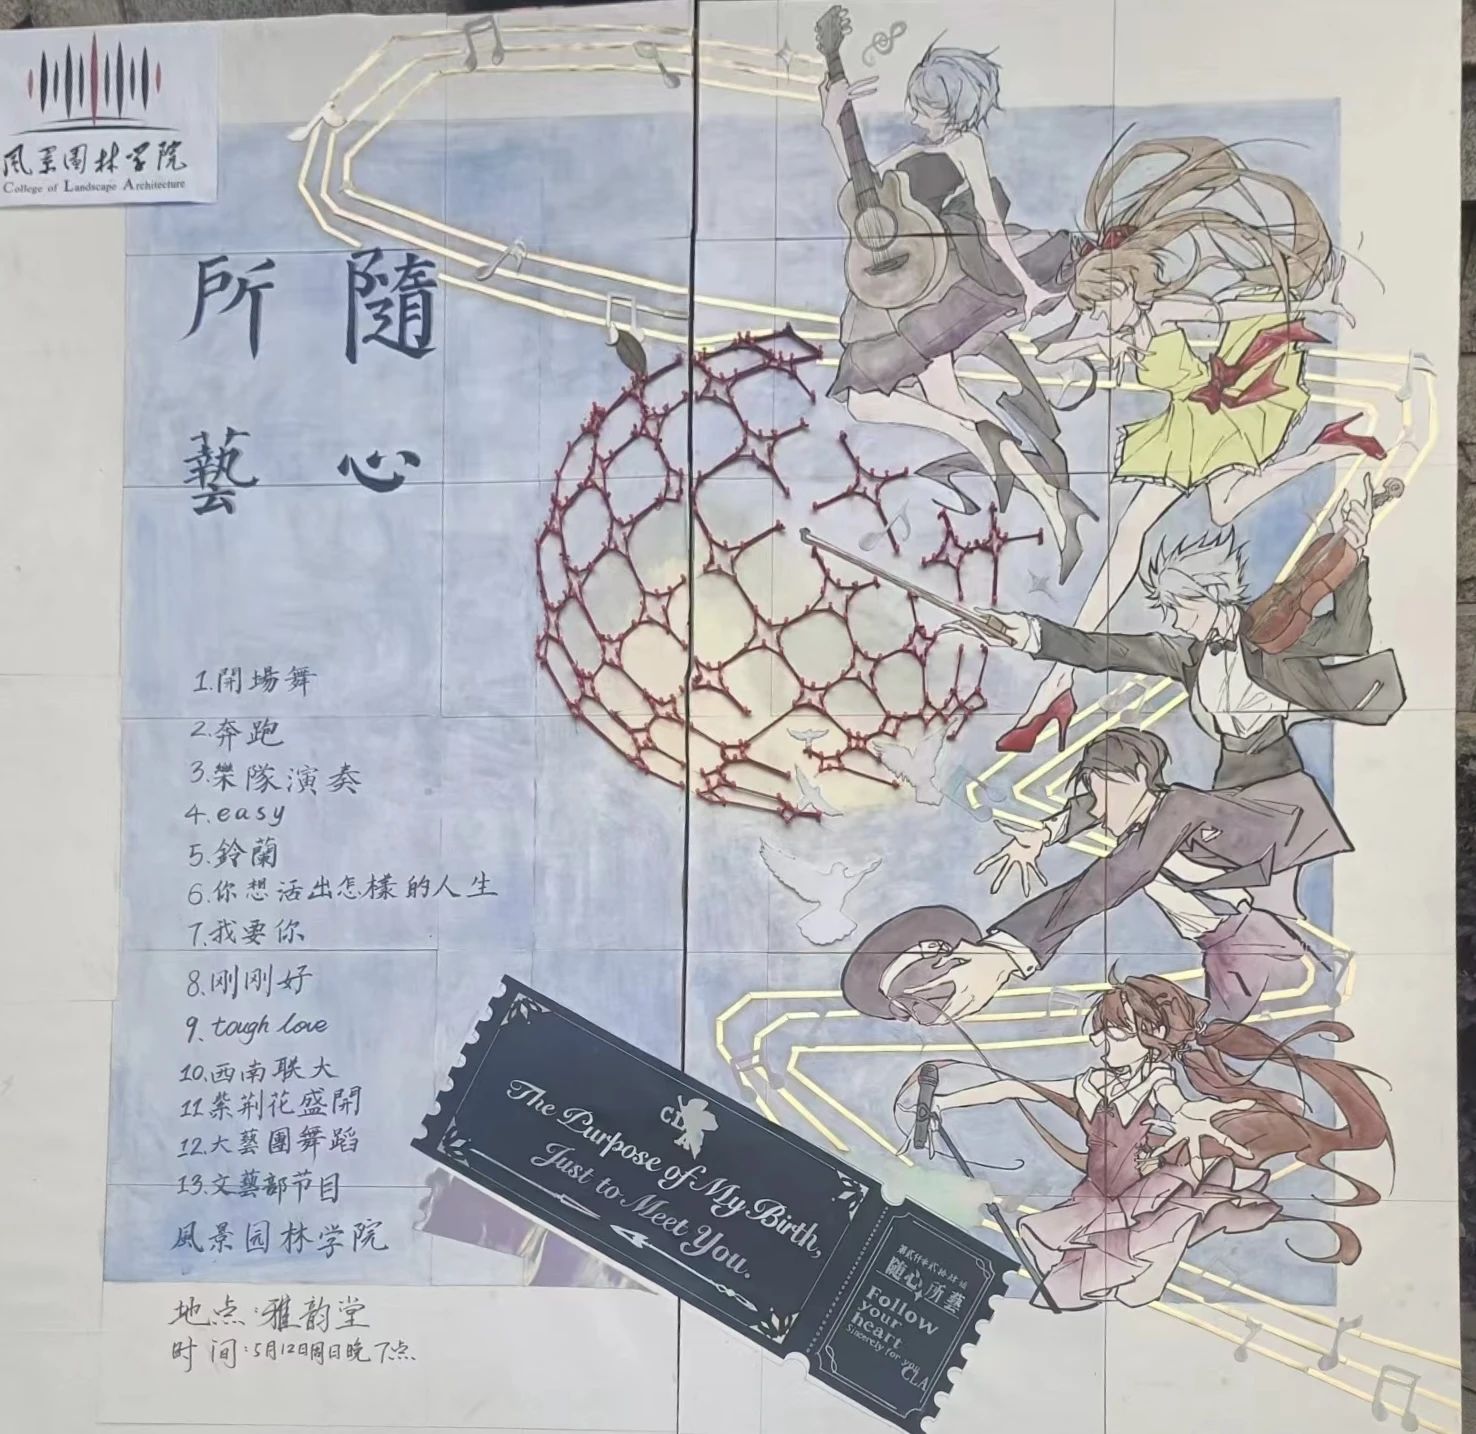 風景園林学院
College of Landscape Architecture
隨心
所藝
1.開場舞
2.奔跑
3.樂隊演奏
4.easy
5.鈴蘭
6.你想活出怎樣的人生
7.我要你
8.刚刚好
9.tough love
10.西南联大
11.紫荆花盛開
12.大藝團舞蹈
13.文藝部节目
風景园林学院
地点:雅韵堂
时间:5月12日周日晚7点
CLA
The Purpose of My Birth,
Just to Meet You.
随心所藝
Follow
your
heart
Sincerely for you
CLA